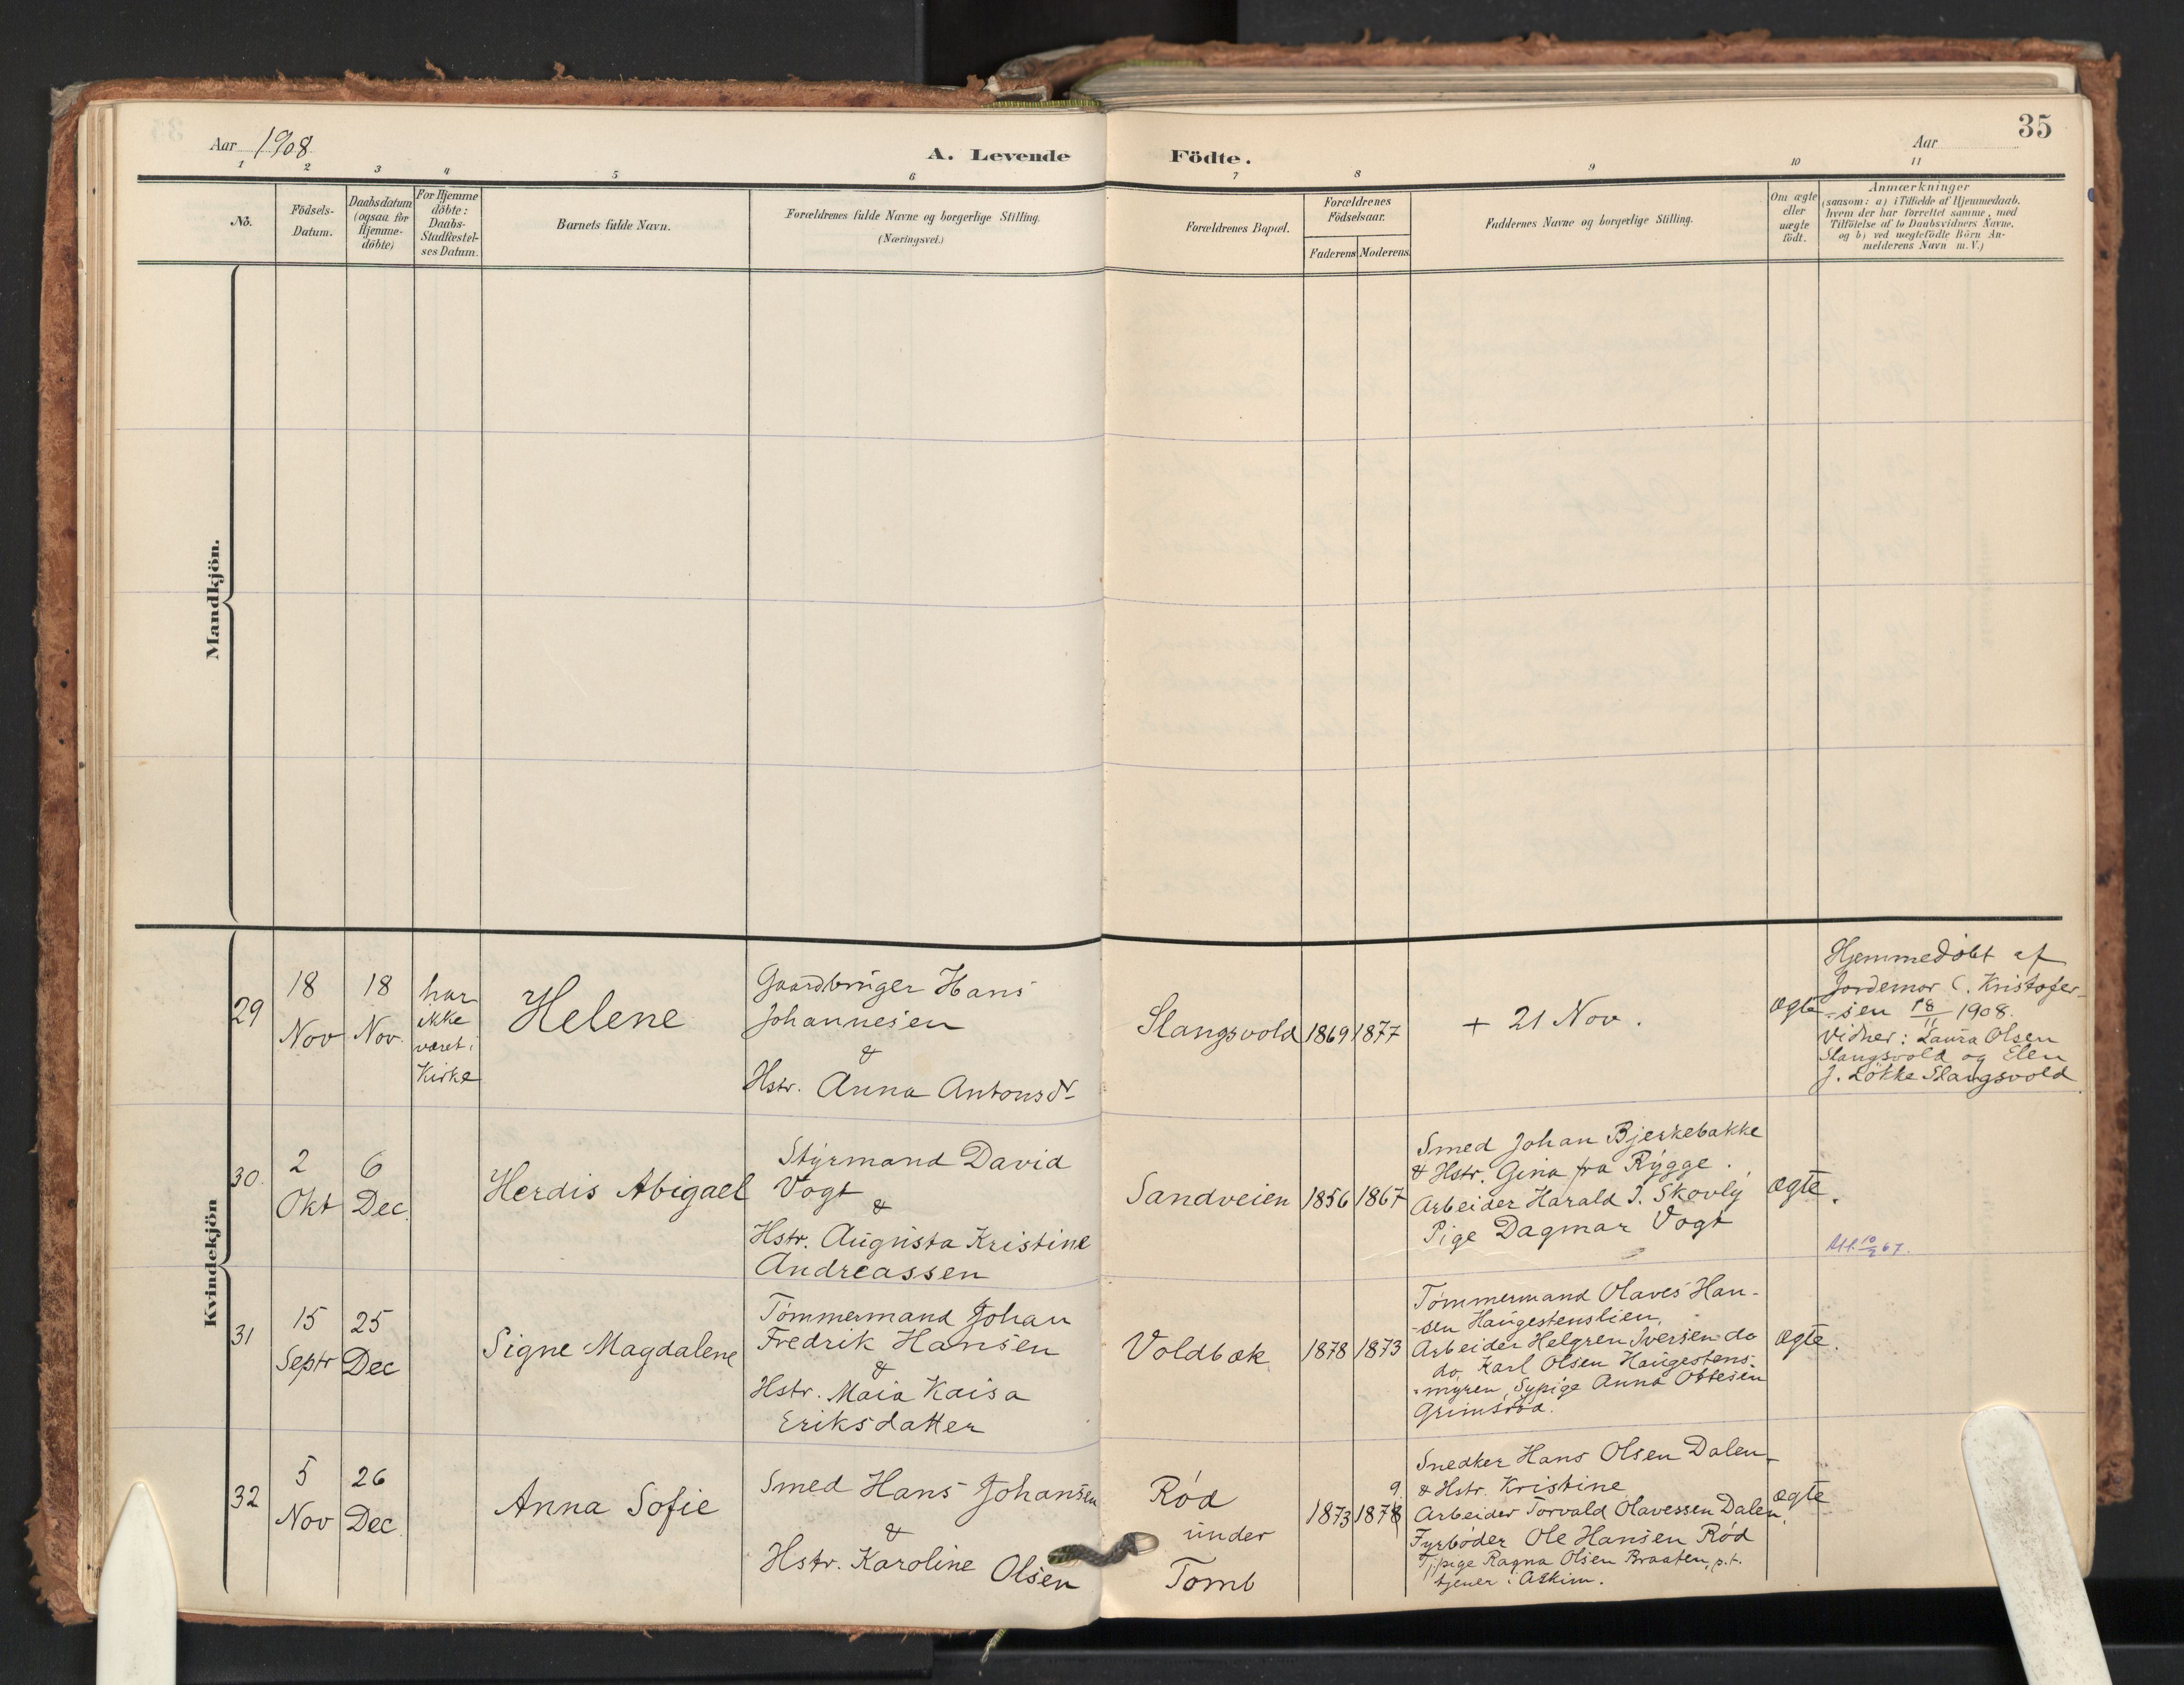 35
Aar 1908
A. Levende Födte.
Aar
1 2 3 4 5 6 7 8 9 10 11
No.
Födsels-
Datum.
Daabsdatum
(ogsaa for
Hjemme-
döbte)
For Hjemme
döbte:
Daabs-
Stadfæstel-
ses Datum.
Barnets fulde Navn.
Forældrenes fulde Navne og borgerlige Stilling.
(Næringsvei.)
Forældrenes Bopæl.
Forældrenes
Födselsaar.
Faderens Moderens
Faddernes Navne og borgerlige Stilling.
Om ægte
eller
uægte
födt.
Anmærkninger
(saasom: a) i Tilfælde af Hjemmedaab,
hvem der har forrettet samme, med
Tilföielse af to Daabsvidners Navne,
og b) ved uægtefödte Börn An-
melderens Navn m. V.)
Mandkjön.
Kvindekjön
29
18
Nov
18
Nov.
har
ikke
været i
Kirke
Helene
Gaardbruger Hans
Johannesen
&
Hstr. Anna Antonsdr
Slangsvold
1869
1877
+ 21 Nov.
ægte
Hjemmedøbt af
Jordemor C. Kristofer-
-sen 18/11 1908.
Vidner: Laura Olsen
Slangsvold og Elen
J. Løkke Slangsvold
30.
2
Okt
6
Dec.
Herdis Abigael
Styrmand David
Vogt
&
Hstr. Augusta Kristine
Andreassen
Sandveien
1856
1867
Smed Johan Bjerkebakke
& Hstr. Gina fra Rygge.
Arbeider Harald J. Skovly
Pige Dagmar Vogt
ægte.
10/2 67.
31
15
Septr
25
Dec
Signe Magdalene
Tømmermand Johan
Fredrik Hansen
&
Hstr. Maia Kaisa
Eriksdatter
Voldbæk
1878
1873
Tømmermand Olaves Han-
-sen Haugestenslien,
Arbeider Helgren Iversen do
do, Karl Olsen Haugestens-
-myren, Sypige Anna Ottesen
Grimsrød.
ægte.
32
5
Nov
26
Dec.
Anna Sofie
Smed Hans Johansen
&
Hstr. Karoline Olsen
Rød
under
Tomb
1873
9.
1878
Snedker Hans Olsen Dalen
& Hstr. Kristine
Arbeider Torvald Olavessen Dalen,
Fyrbøder Ole Hansen Rød
Tj.pige Ragna Olsen Braaten, p.t.
tjener i Askim.
ægte